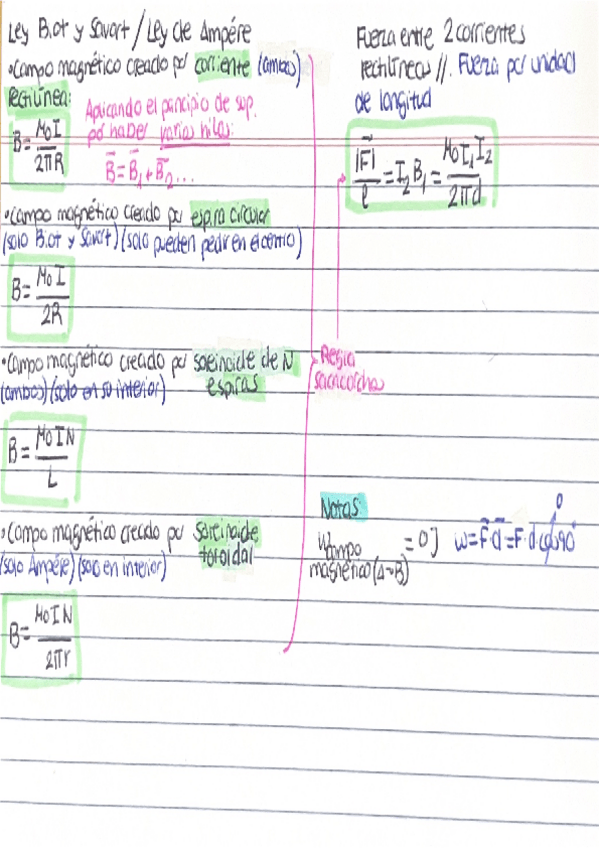 Ley Biot y Savart / Ley de Ampére
• Campo magnético creado por corriente (ambas)
rectilínea:
Aplicando el principio de sup.
por haber varios hilos:
B = μ₀I / 2πR
B⃗ = B⃗₁ + B⃗₂...
• Campo magnético creado por espira circular
(solo Biot y Savart) (solo pueden pedir en el centro)
B = μ₀I / 2R
• Campo magnético creado por soleinoide de N
espiras
(ambos) (solo en su interior)
B = μ₀IN / L
• Campo magnético creado por soleinoide
toroidal
(solo Ampére) (solo en interior)
B = μ₀IN / 2πr
Fuerza entre 2 corrientes
rectilíneas //. Fuerza por unidad
de longitud
|F⃗| / l = I₂B₁ = μ₀I₁I₂ / 2πd
Regla
sacacorchos
Notas
W campo = 0J
magnético (A→B)
w = F⃗·d⃗ = F·d·cos90° 0